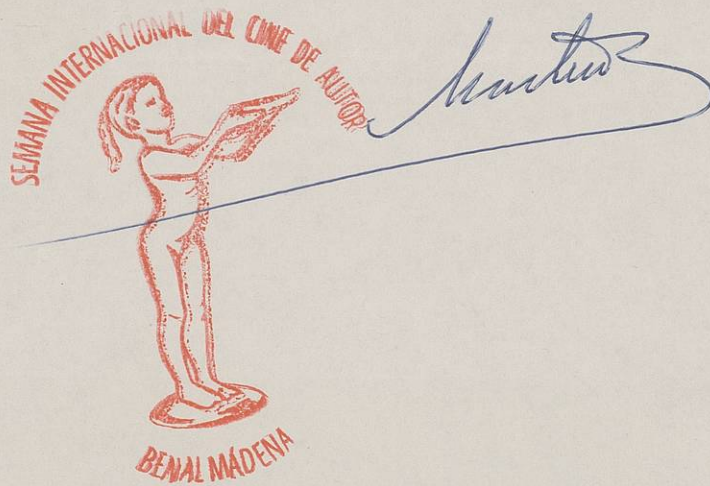 SEMANA INTERNACIONAL DEL CINE DE AUTOR
BENALMÁDENA